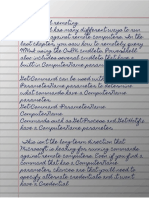 PowerShell remoting
PowerShell has many different ways to run
commands against remote computers. In the
last chapter, you saw how to remotely query
WMI using the CIM cmdlets. PowerShell
also includes several cmdlets that have a
built-in ComputerName parameter.
Get-Command can be used with a
Parameter to determine
what commands have a ComputerName
parameter.
Get-Command -ParameterName
ComputerName
Commands such as Get-Process and Get-Hotfix
have a ComputerName parameter.
this isn't the long-term direction that
Microsoft is heading for running commands
against remote computers. Even if you find a
command that has a ComputerName
parameter, chances are that you'll need to
specify alternate credentials and it won't
have a Credential